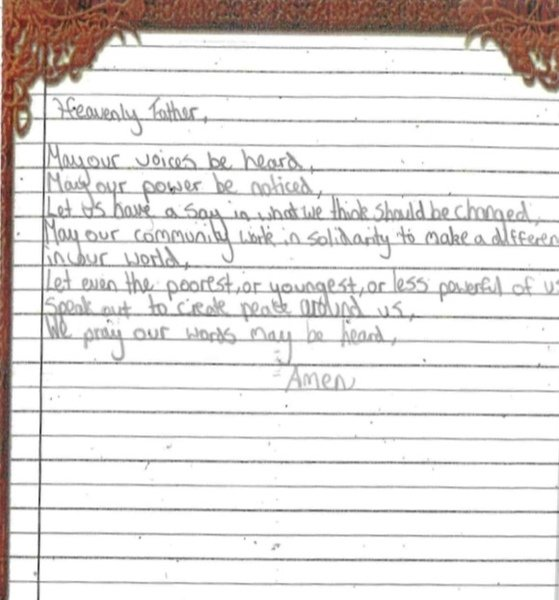 Heavenly Father,
May our voices be heard,
May our power be noticed,
Let us have a say in what we think should be changed,
May our community work in solidarity to make a differen
in our world,
Let even the poorest, or youngest, or less powerful of us
Speak out to create peace around us,
We pray our words may be heard,
Amen